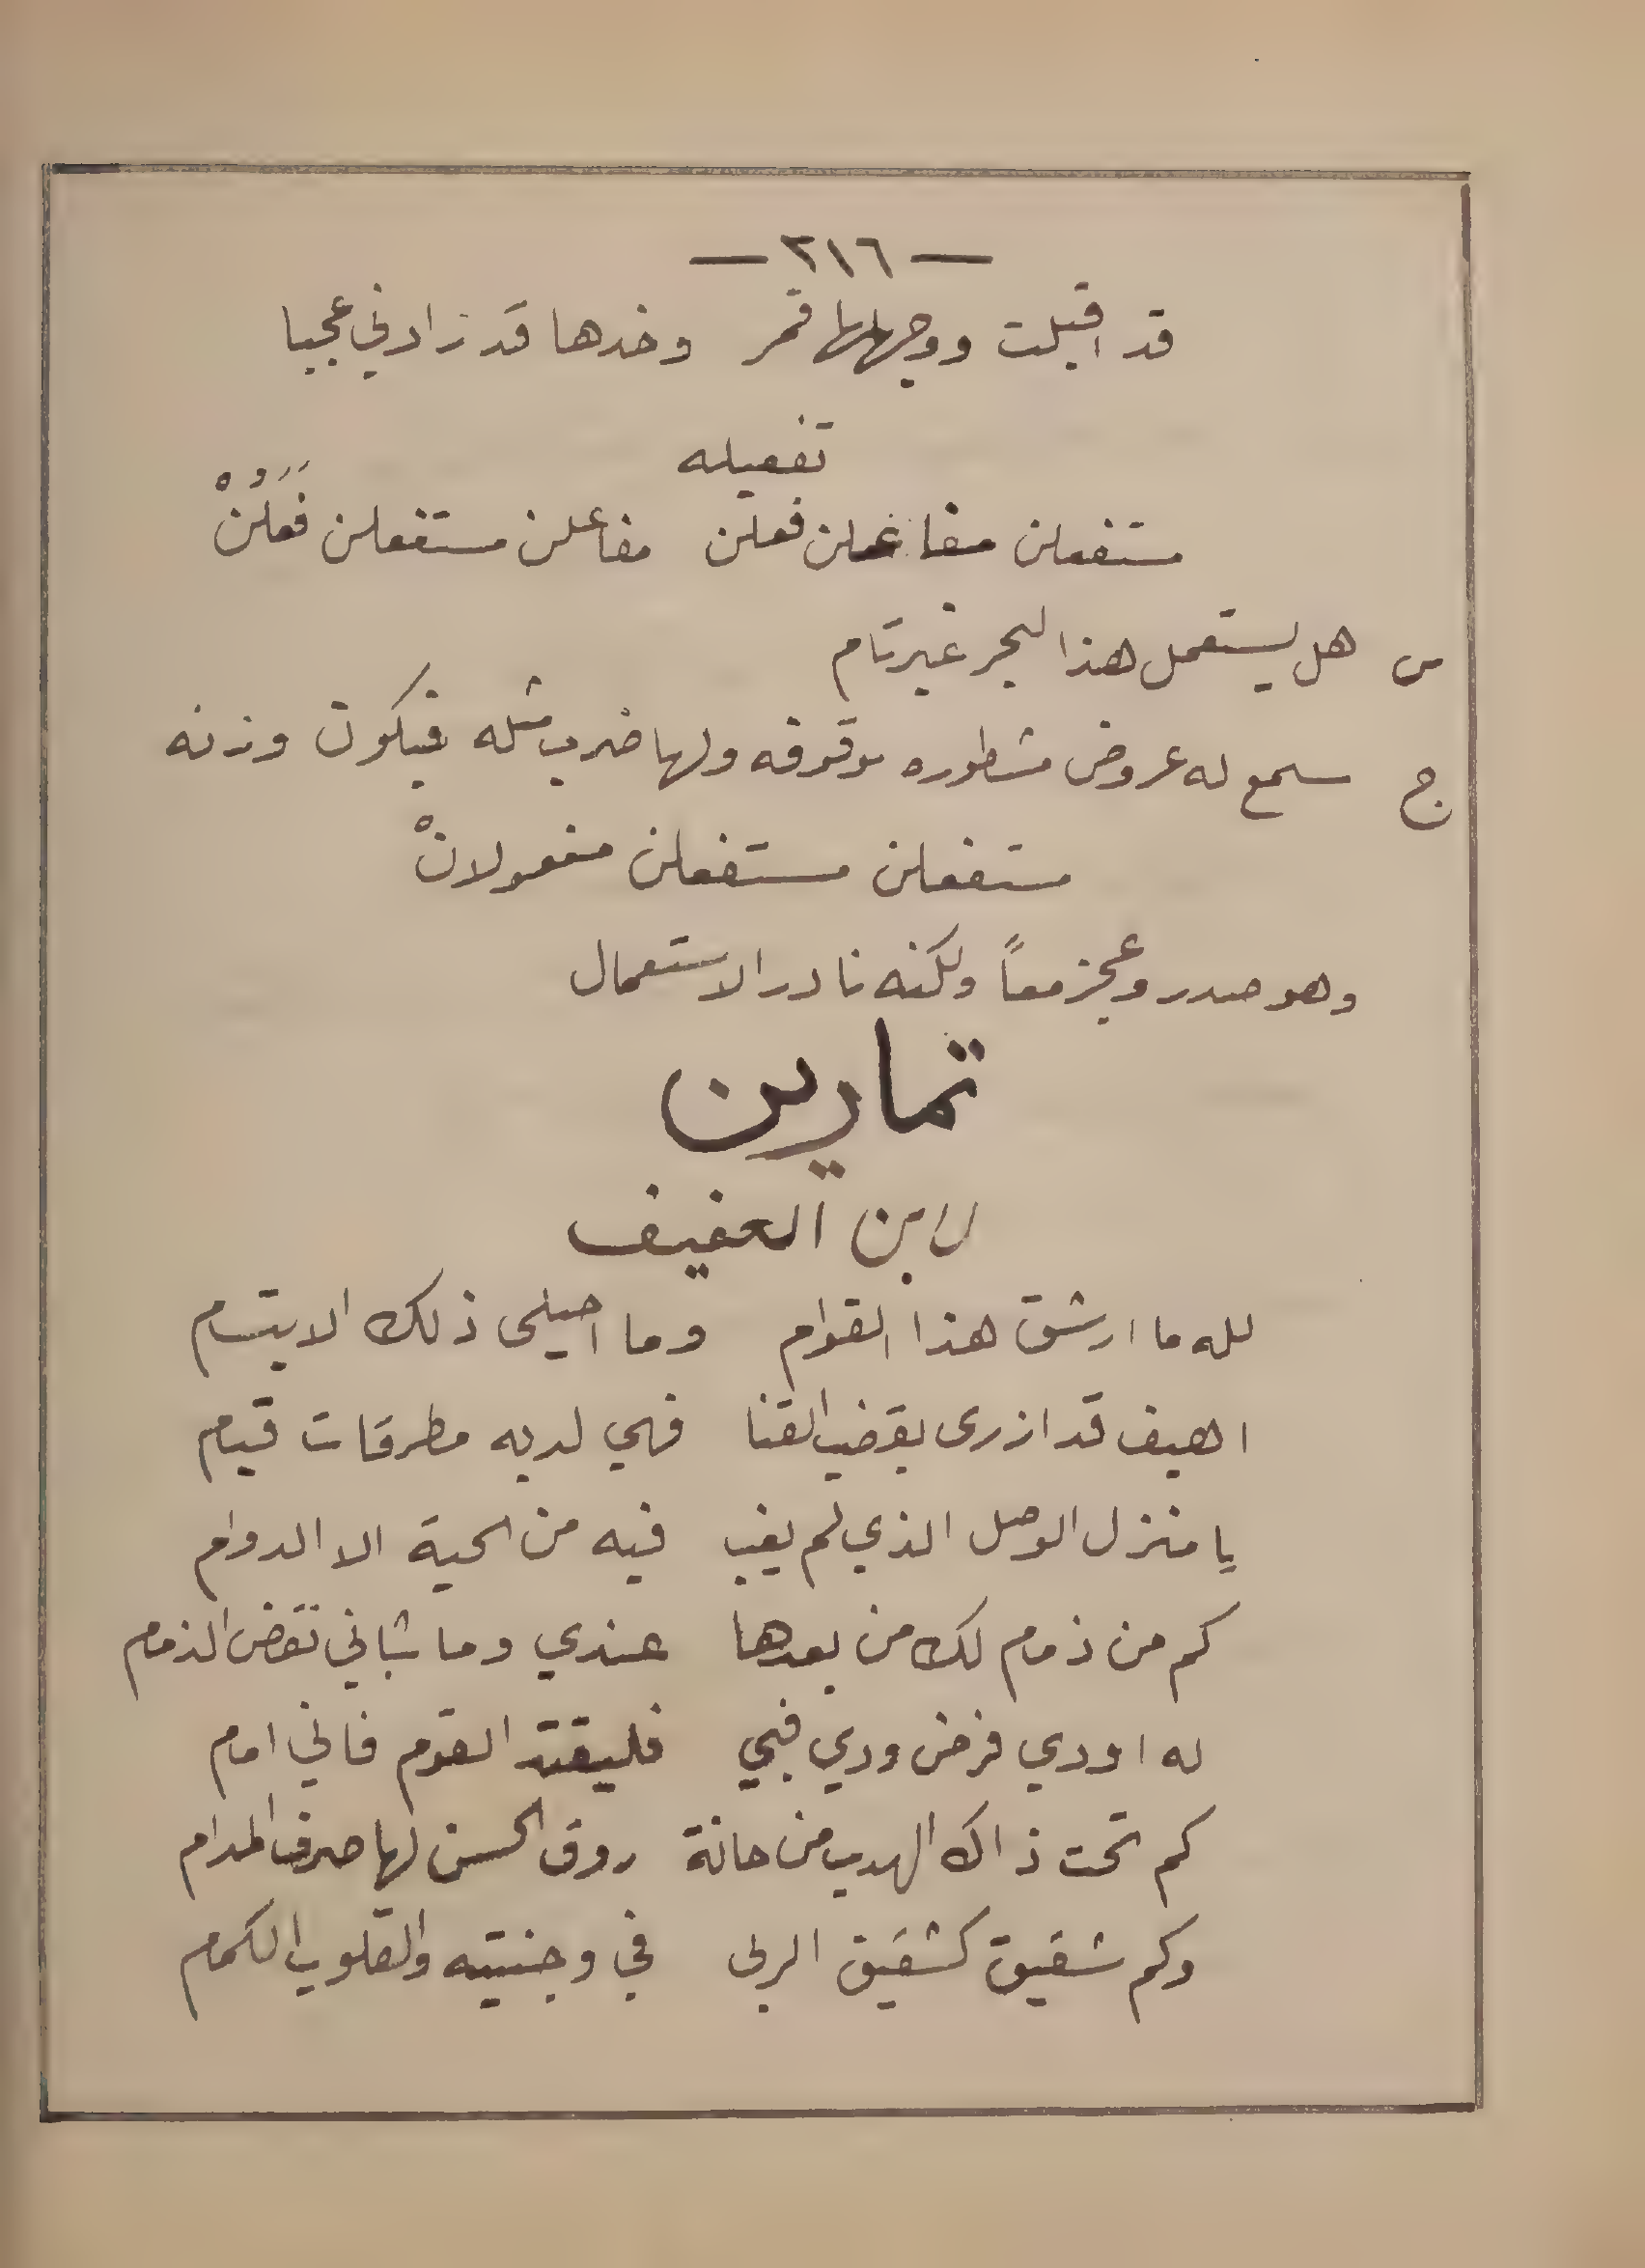 — ٢١٦ —
قد اقبلت ووجهها قمر وخدها قد زادني عجبا
تفعيله
مستفعلن مفاعلن فعلن مفاعلن مستفعلن فَعَلُنْ
س هل يستعمل هذا البحر غير تام
ج سمع له عروض مشطوره موقوفه ولها ضرب مثله فيكون وزنه
مستفعلن مستفعلن مفعولانْ
وهو صدر وعجز معاً ولكنه نادر الاستعمال
تمارين
لابن العفيف
لله ما ارشق هذا القوام وما احيلى ذلك الابتسام
اهيف قد ازرى بقضب القنا فهي لديه مطرقات قيام
يا منزل الوصل الذي لم يغب فيه من الحية الا الدوام
كم من ذمام لك من بعدها عندي وما شاني نقض الذمام
له اودي فرض ودي فيي فليقتد القوم فاني امام
كم تحت ذاك الهدب من حانة روق الحسن لها صرف المدام
وكم شقيق كشقيق الربى في وجنتيه والقلوب الكمام